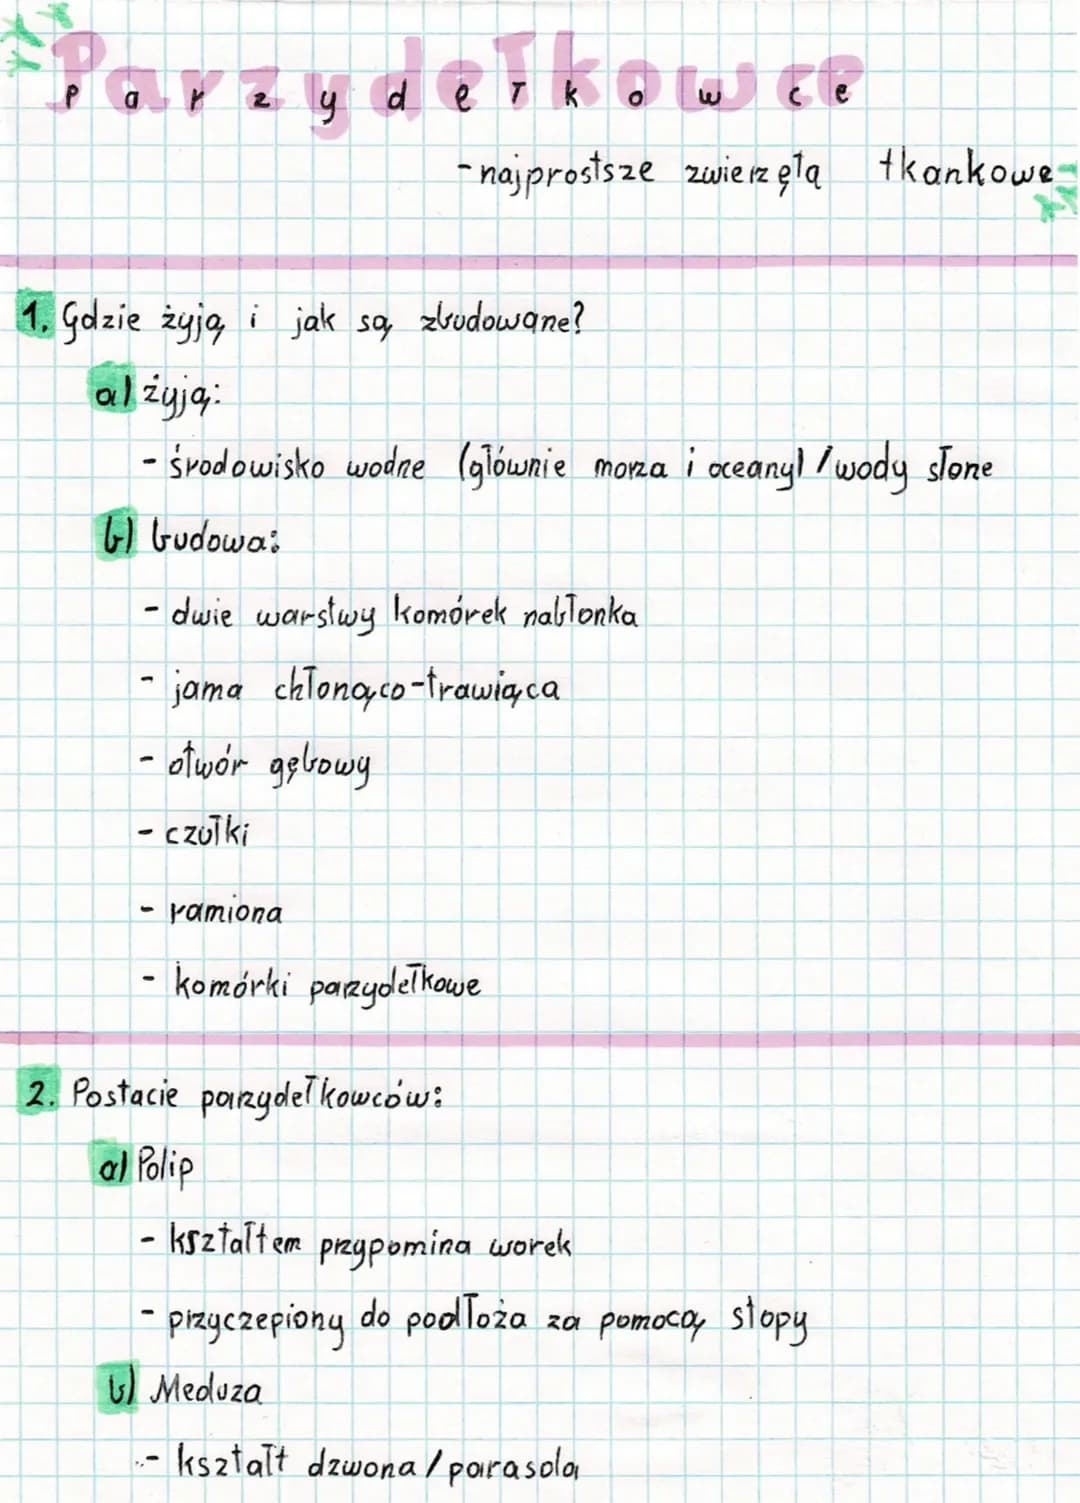 Parzydełkowce
-najprostsze zwierzęta tkankowe
1. Gdzie żyją i jak są zbudowane?
a) żyją:
- środowisko wodne (głównie morza i oceany) / wody słone
b) budowa:
- dwie warstwy komórek nabłonka
- jama chłonąco-trawiąca
- otwór gębowy
- czułki
- ramiona
- komórki parzydełkowe
2. Postacie parzydełkowców:
a) Polip
- kształtem przypomina worek
- przyczepiony do podłoża za pomocą stopy
b) Meduza
- kształt dzwona / parasola